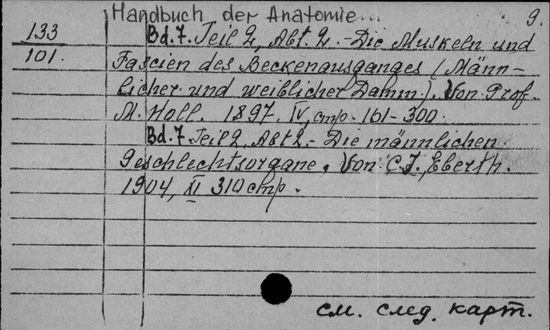 Handbuch der Anatomie... 9.
133 Bd. 7. Teil 2, Abt. 2. - Die Muskeln und
101. Fascien des Beckenausganges (Männ-
licher und weiblicher Damm). Von Prof.
M. Holl. 1897. IV, стр. 161-300.
Bd. 7. Teil 2, Abt 2. - Die männlichen
Geschlechtsorgane. Von C. J. Eberth.
1904, XI 310 стр.
см. след. карт.